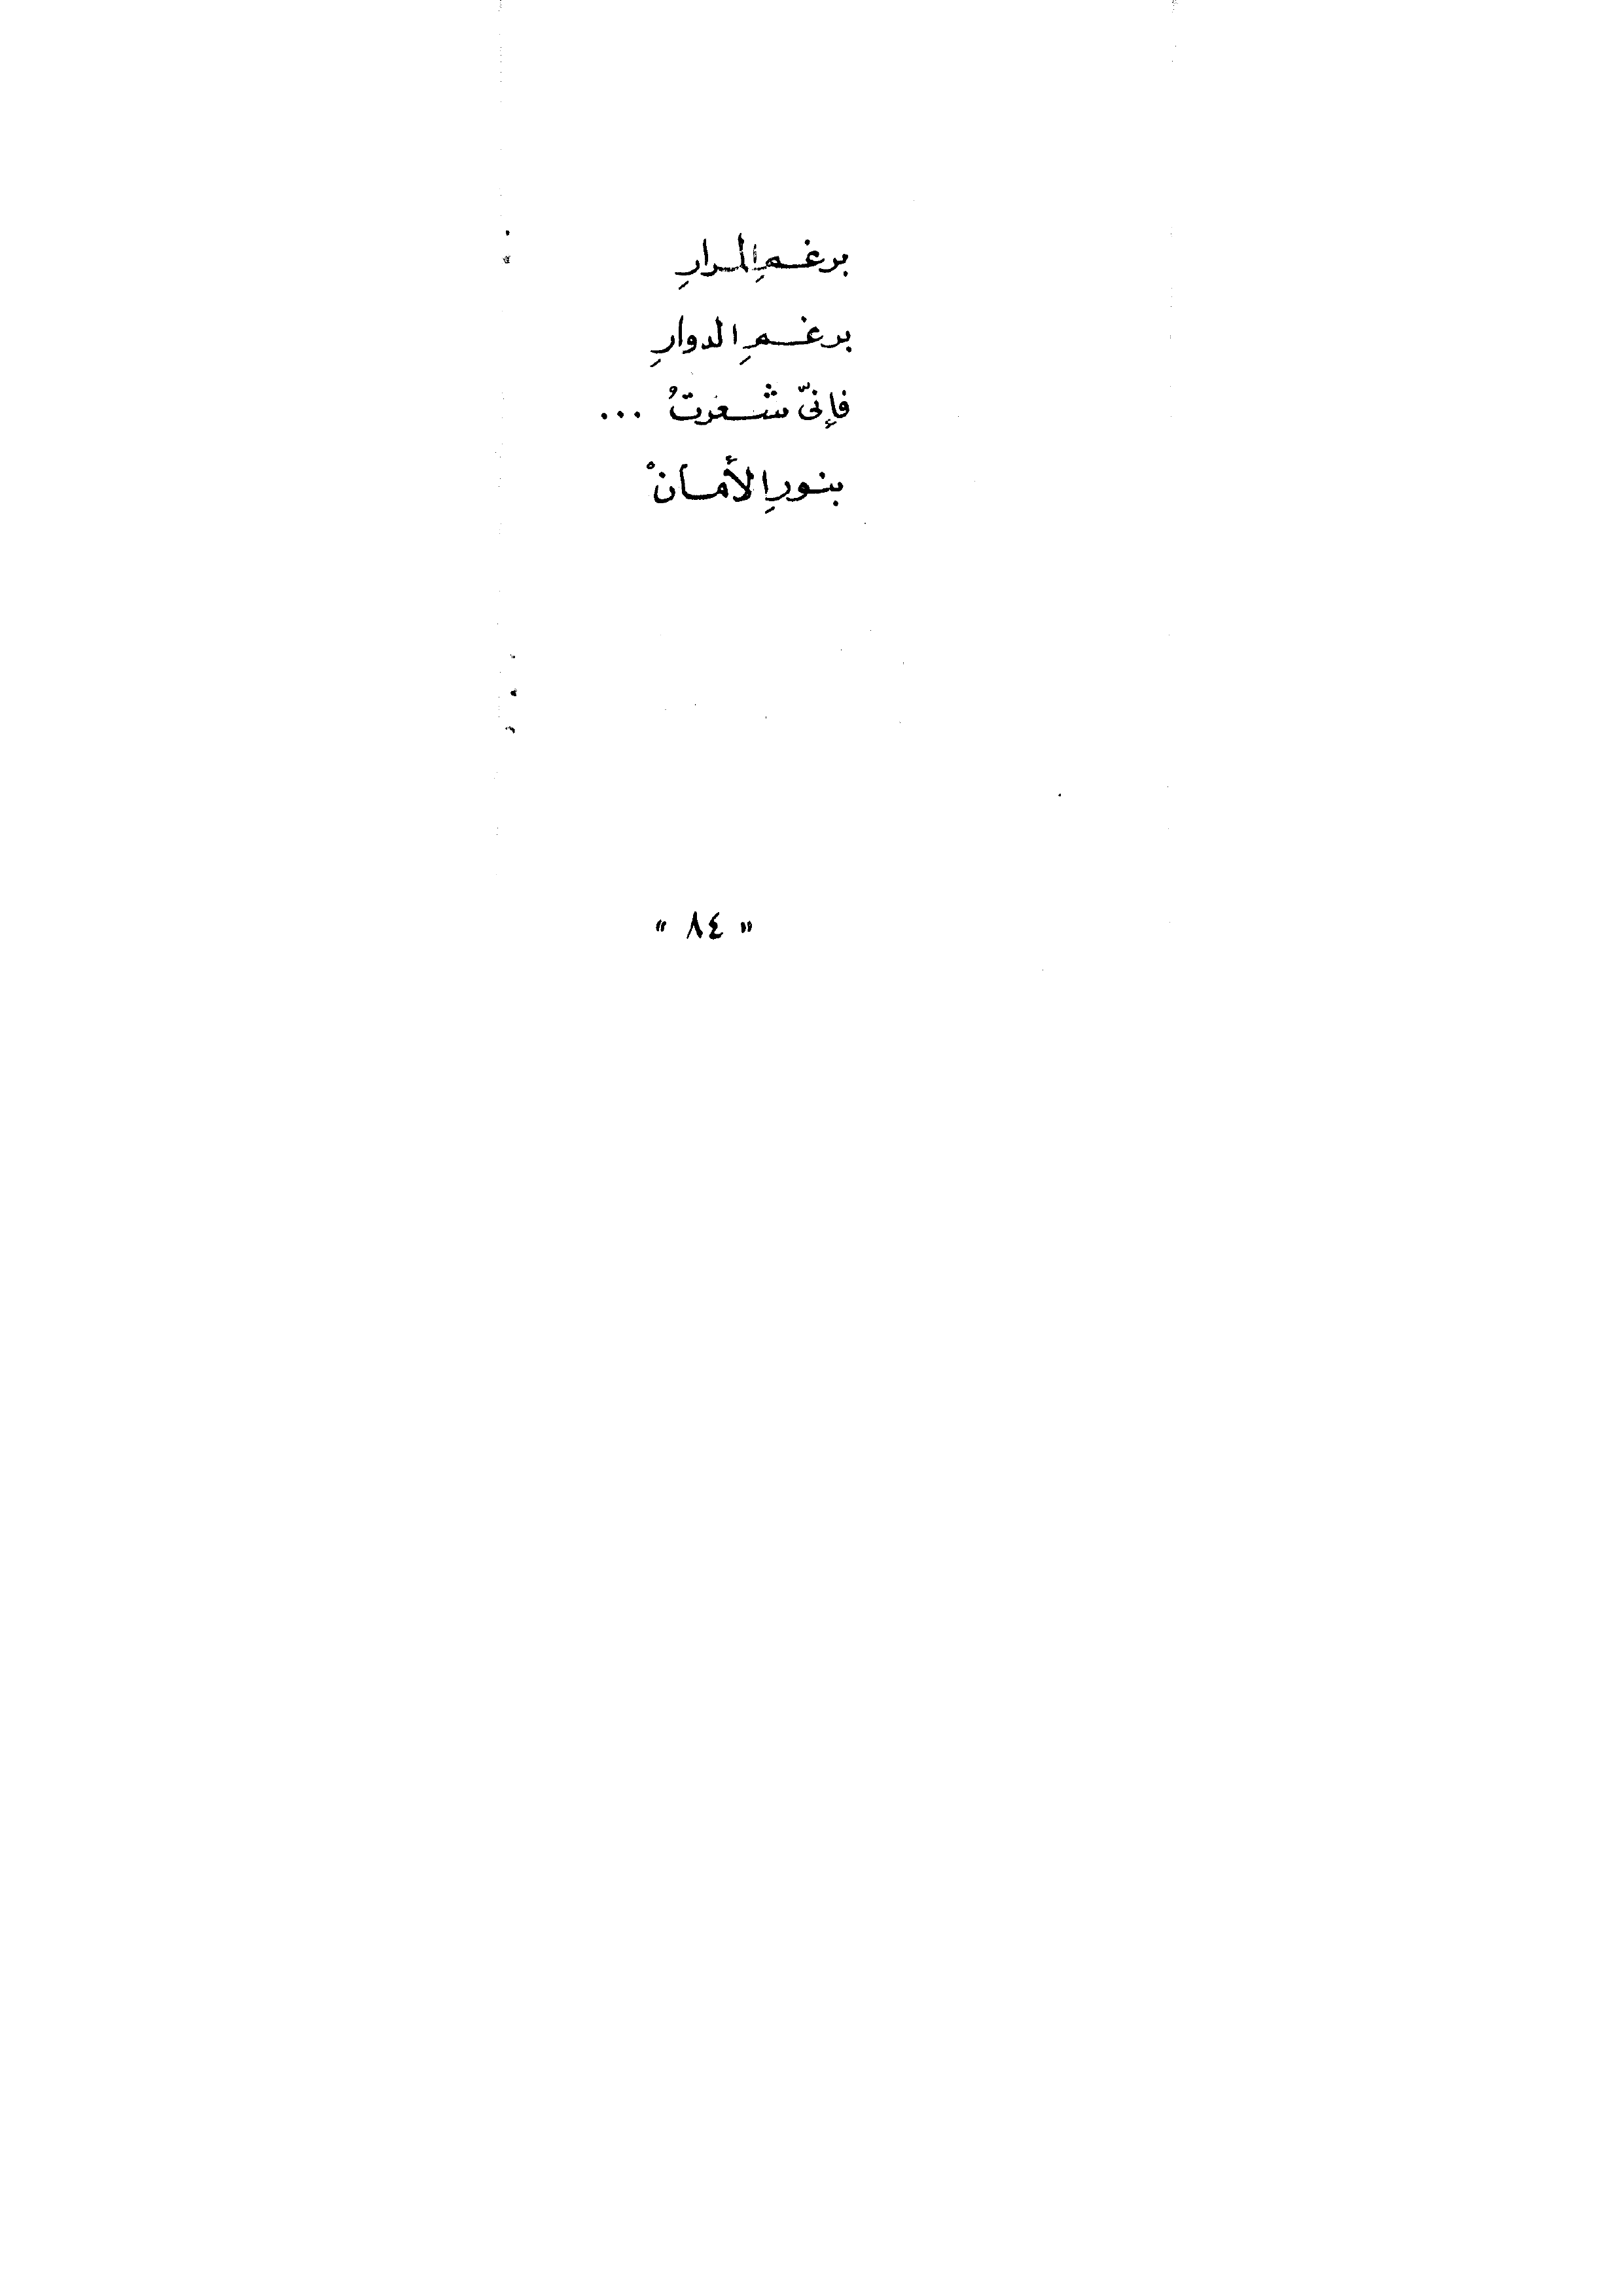 برغمِ المرارِ
برغمِ الدوارِ
فإنىّ شعرتُ ...
بنورِ الأمانْ
" ٨٤ "